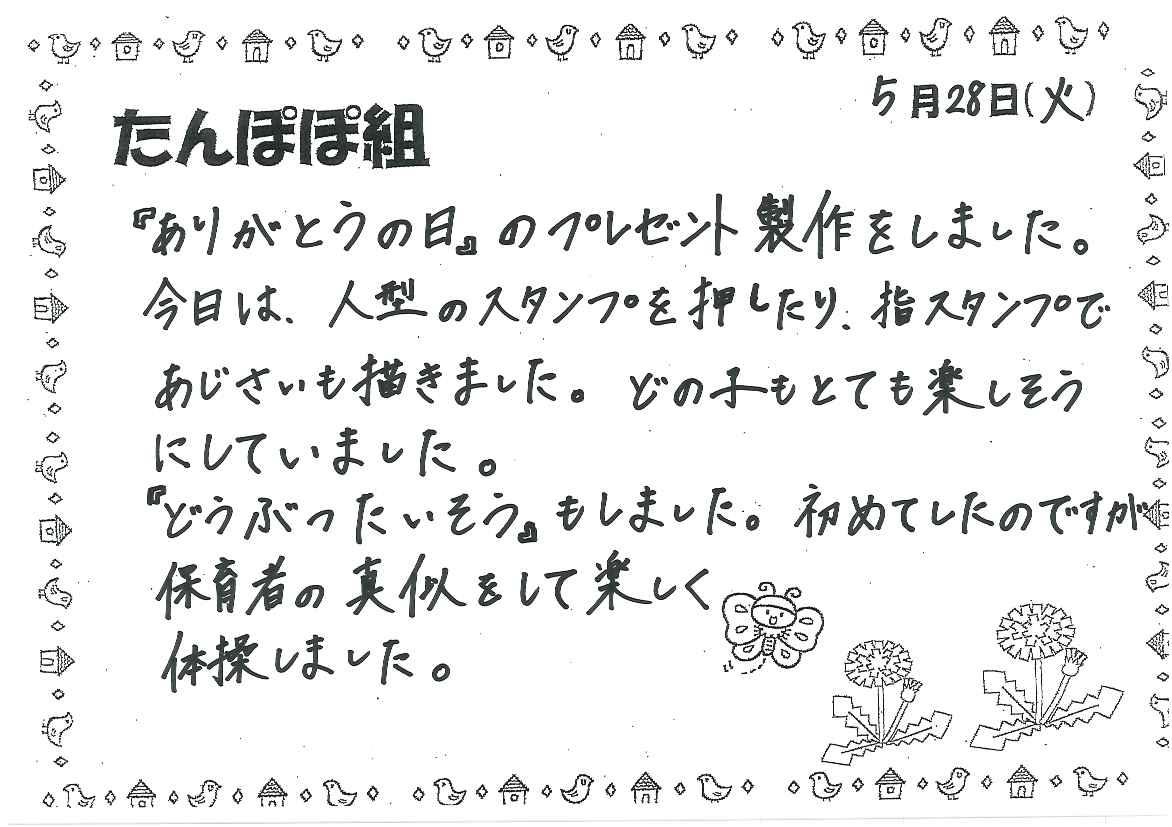 5月28日(火)
たんぽぽ組
『ありがとうの日』のプレゼント製作をしました。
今日は、人型のスタンプを押したり、指スタンプで
あじさいも描きました。どの子もとても楽しそう
にしていました。
『どうぶつたいそう』もしました。初めてしたのですが
保育者の真似をして楽しく
体操しました。